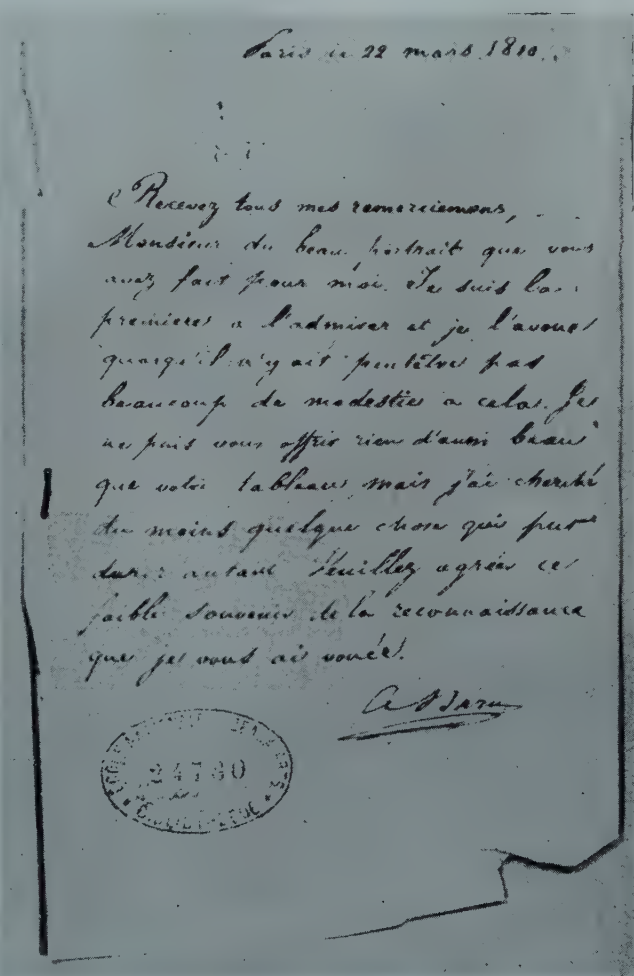 Paris le 22 mars 1810.
Recevez tous mes remerciemens,
Monsieur du beau portrait que vous
avez fait pour moi. Je suis la
premiere a l'admirer et je l'avoue
quoiqu'il n'y ait peutêtre pas
beaucoup de modestie a cela. Je
ne puis vous offrir rien d'aussi beau
que votre tableau mais j'ai cherché
du moins quelque chose qui put
durer autant Veuillez agréer ce
faible souvenir de la reconnaissance
que je vous ai vouée.
A Daru
24780